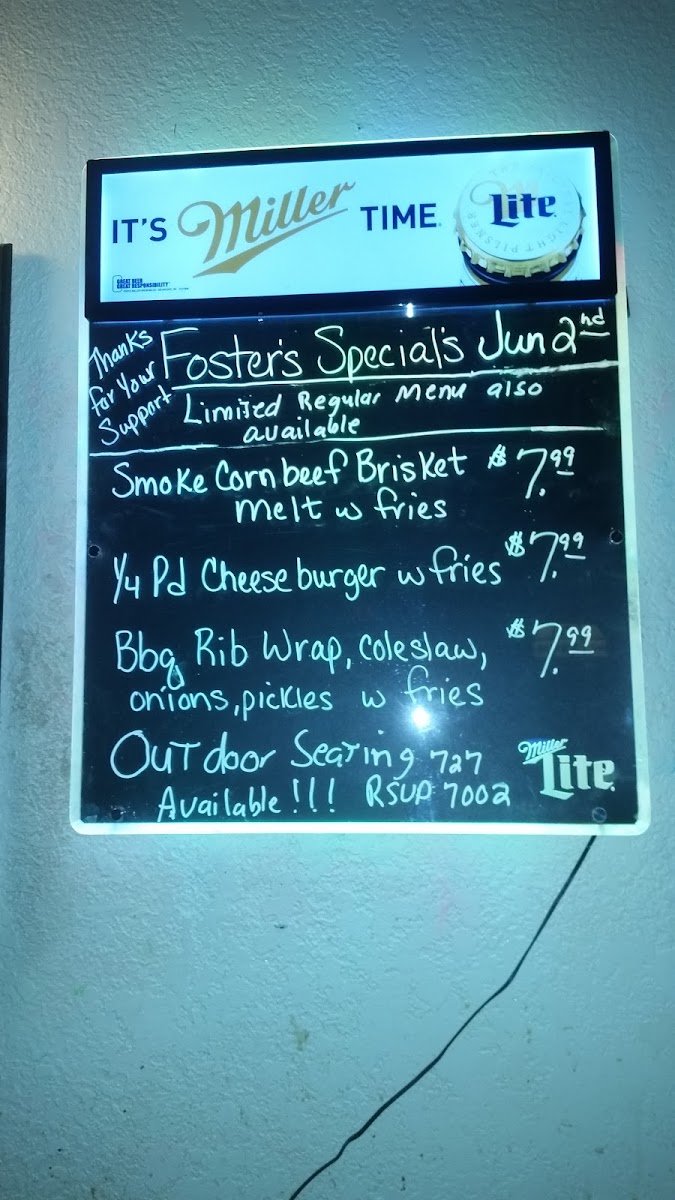 IT'S Miller TIME
Lite
GREAT BEER
GREAT RESPONSIBILITY
Thanks
for Your
Support
Foster's Special's Jun 2nd
Limited Regular Menu also
available
Smoke Corn beef Brisket $7.99
melt w fries
1/4 Pd Cheese burger w fries $7.99
Bbq Rib Wrap, coleslaw, $7.99
onions, pickles w fries
Outdoor Seating 727
Available!!! RSVP 7002
Miller
Lite